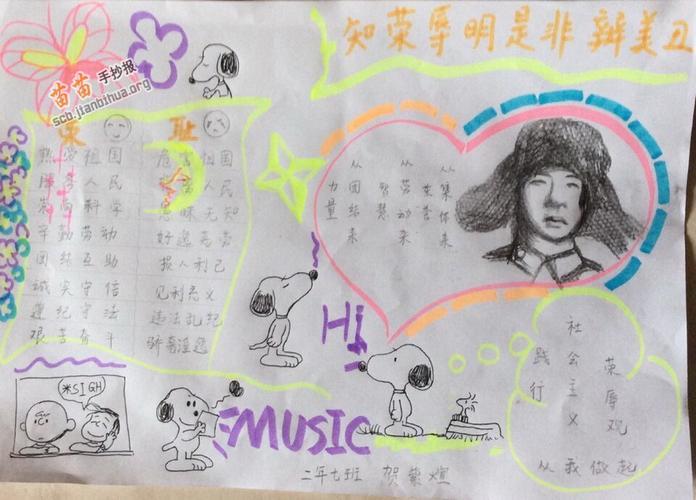 知荣辱明是非辨美丑
苗苗手抄报
scb.jianbihua.org
荣 耻
热爱祖国 危害祖国
服务人民 背离人民
崇尚科学 愚昧无知
辛勤劳动 好逸恶劳
团结互助 损人利己
诚实守信 见利忘义
遵纪守法 违法乱纪
艰苦奋斗 骄奢淫逸
从集体来
荣誉
从劳动来
智慧
从团结来
力量
Hi
*SIGH
MUSIC
社会主义
荣辱观
践行
从我做起
二年七班 贺紫煊